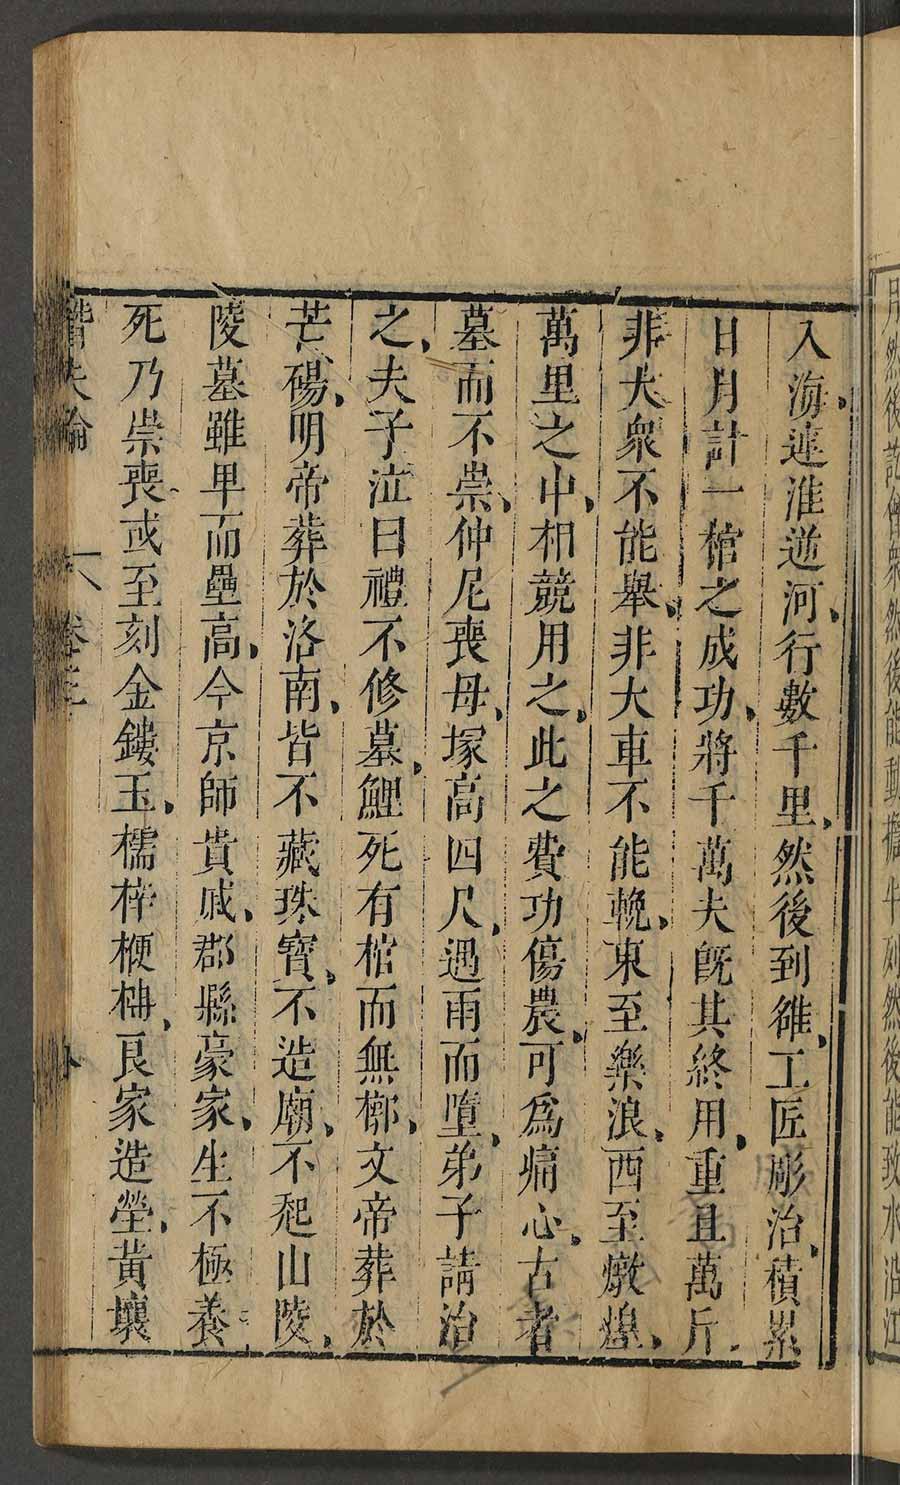 入海連淮逆河行數千里然後到雒工匠彫治積累
日月計一棺之成功將千萬夫旣其終用重且萬斤
非大衆不能舉非大車不能輓東至樂浪西至燉煌
萬里之中相競用之此之費功傷農可爲痛心古者
墓而不崇仲尼喪母塚高四尺遇雨而墮弟子請治
之夫子泣曰禮不修墓鯉死有棺而無槨文帝葬於
芒碭明帝葬於洛南皆不藏珠寶不造廟不起山陵
陵墓雖卑而壘高今京師貴戚郡縣豪家生不極養
死乃崇喪或至刻金鏤玉檽梓楩柟良家造塋黃壤
潛夫論 卷三